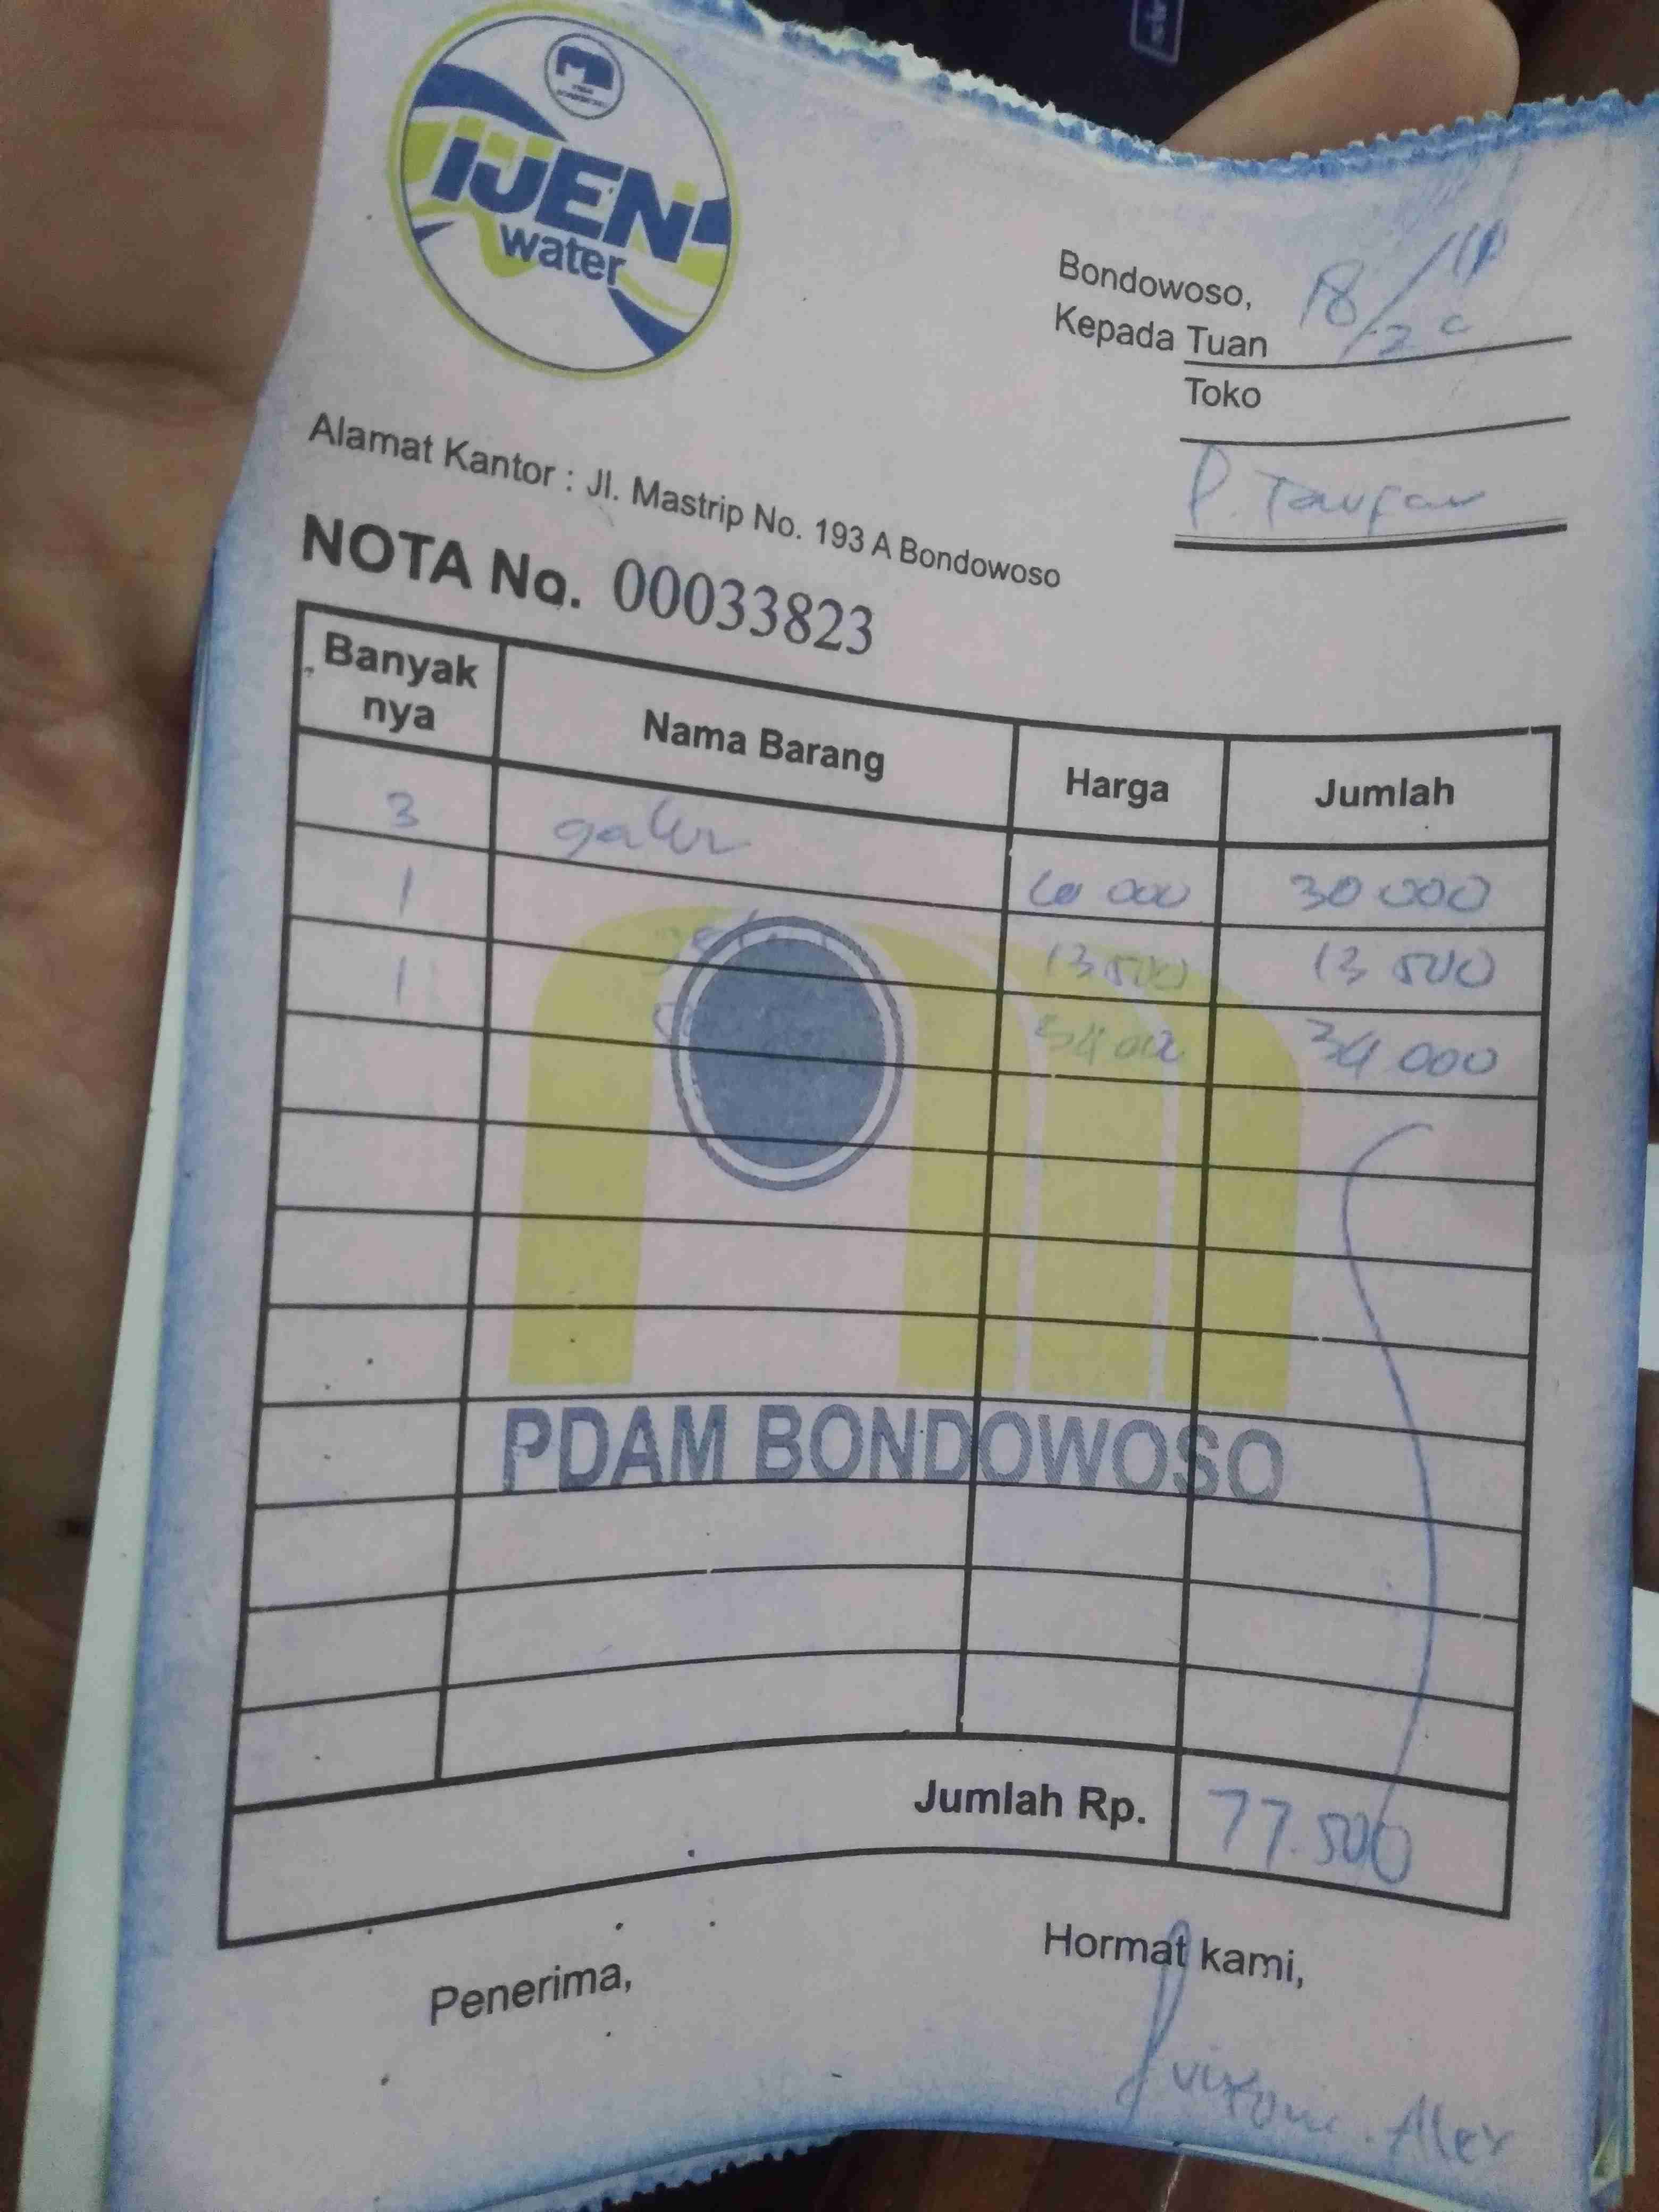 IJEN
water
Bondowoso, 18/11/20
Kepada Tuan
Toko
P. Taufan
Alamat Kantor : Jl. Mastrip No. 193 A Bondowoso
NOTA No. 00033823
Banyak nya Nama Barang Harga Jumlah
3 galon 10 000 30 000
1 13 500 13 500
1 34 000 34 000
PDAM BONDOWOSO
Jumlah Rp. 77.500
Penerima, Hormat kami,